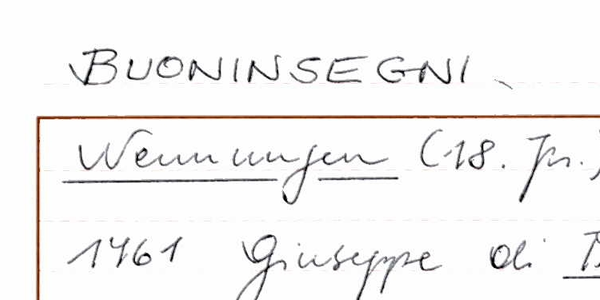 BUONINSEGNI
Nennungen (18. Jh.)
1761 Giuseppe di